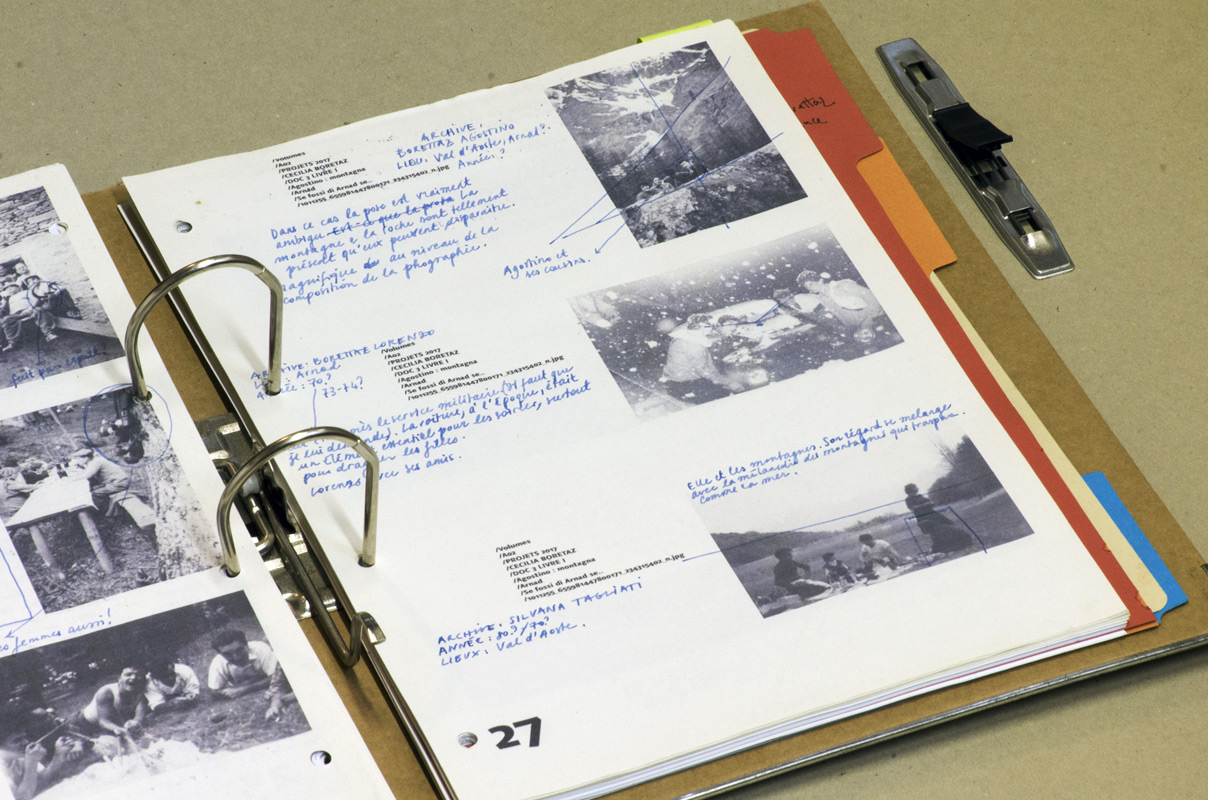 ettaz
nce
fait pas espr
femmes aussi!
/Volumes
/A02
/PROJETS 2017
/CECILIA BORETAZ
/DOC 3 LIVRE I
/Agostino : montagna
/Arnad
/Se fossi di Arnad se..
/1011255_655981447800171_234315402_n.jpg
ARCHIVE.
BORETTAZ AGOSTINO
LIEU. Val d'Aoste, Arnad?.
Années ?
Dans ce cas la pose est vraiment
ambigu. Est-ce que la prota La
montagne e la roche sont tellement
présent qu'eux peuvent disparaître.
magnifique de au niveau de la
composition de la phographie.
Agostino et
ses cousins.
ARCHIVE: BORETTAZ LORENZO
Arnad
: 70?
73-74?
/Volumes
/A02
/PROJETS 2017
/CECILIA BORETAZ
/DOC 3 LIVRE I
/Agostino : montagna
/Arnad
/Se fossi di Arnad se..
/1011255_655981447800171_234315402_n.jpg
près le service militaire (?) faut que
je lui demande). La voiture, à l'époque, était
un élément essentiel pour les soirées, surtout
pour draguer les filles.
Lorenzo avec ses amis.
Elle et les montagnes. Son régard se mélange
avec la mélancolie des montagnes qui transpar.
comme la mer.
/Volumes
/A02
/PROJETS 2017
/CECILIA BORETAZ
/DOC 3 LIVRE I
/Agostino : montagna
/Arnad
/Se fossi di Arnad se..
/1011255_655981447800171_234315402_n.jpg
ARCHIVE. SILVANA TAGLIATI
ANNÉE : 80?/70?
LIEUX : Val d'Aoste.
27